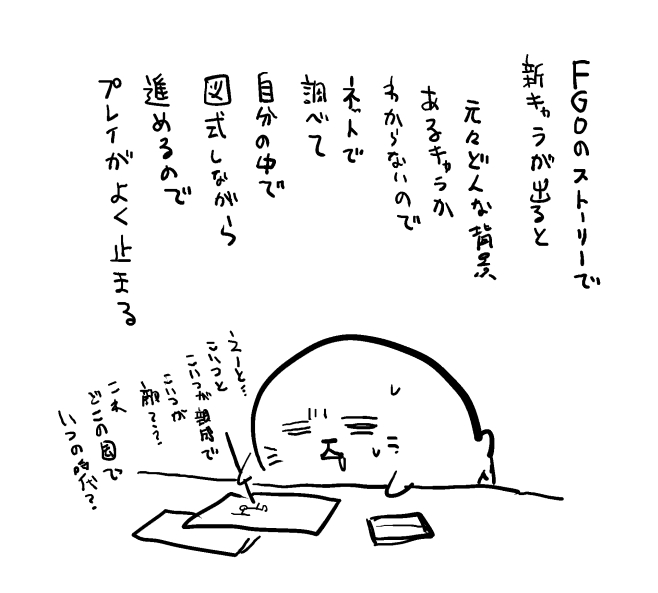 FGOのストーリーで
新キャラが出ると
元々どんな背景
あるキャラか
わからないので
ネットで
調べて
自分の中で
図式しながら
進めるので
プレイがよく止まる
えーと…
こいつと
こいつが親戚で
こいつが
敵で…?
これ
どこの国で
いつの時代?